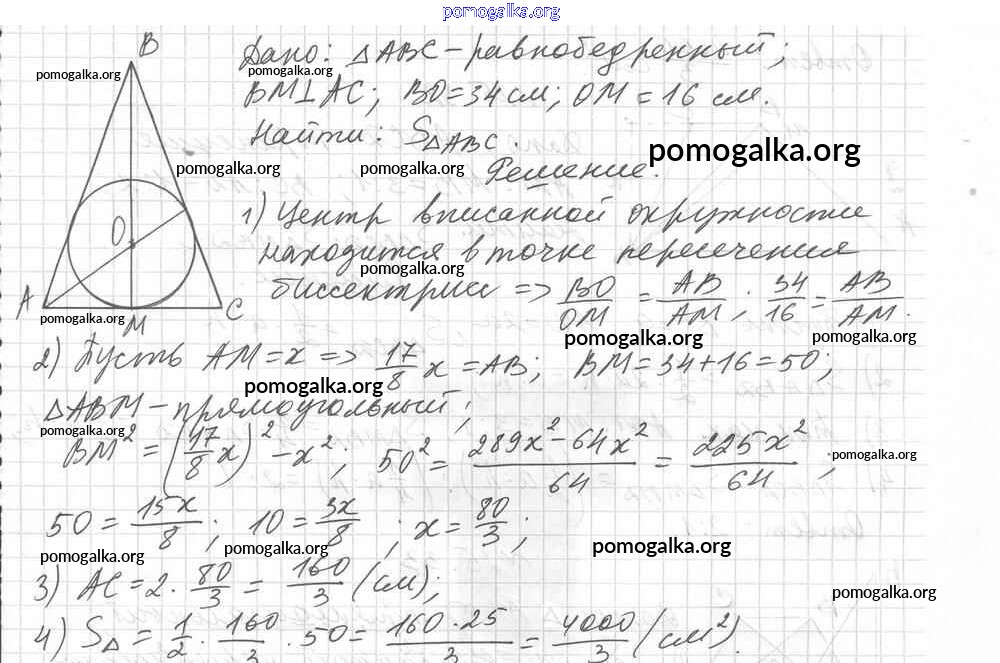 pomogalka.org
B
Дано: △ABC – равнобедренный;
pomogalka.org pomogalka.org
BM⊥AC; BO=34 см; OM=16 см.
Найти: S△ABC.
pomogalka.org
pomogalka.org pomogalka.org Решение.
1) Центр вписанной окружности
O
находится в точке пересечения
pomogalka.org
биссектрис => BO/OM = AB/AM; 34/16 = AB/AM.
A M C
pomogalka.org
pomogalka.org pomogalka.org
2) Пусть AM=x => 17/8 x = AB; BM=34+16=50;
pomogalka.org pomogalka.org
△ABM – прямоугольный;
pomogalka.org
BM² = (17/8 x)² - x²; 50² = 289x²-64x²/64 = 225x²/64;
pomogalka.org
50 = 15x/8; 10 = 3x/8; x = 80/3;
pomogalka.org pomogalka.org pomogalka.org
3) AC = 2·80/3 = 160/3 (см);
pomogalka.org
4) S△ = 1/2 · 160/3 · 50 = 160·25/3 = 4000/3 (см²).